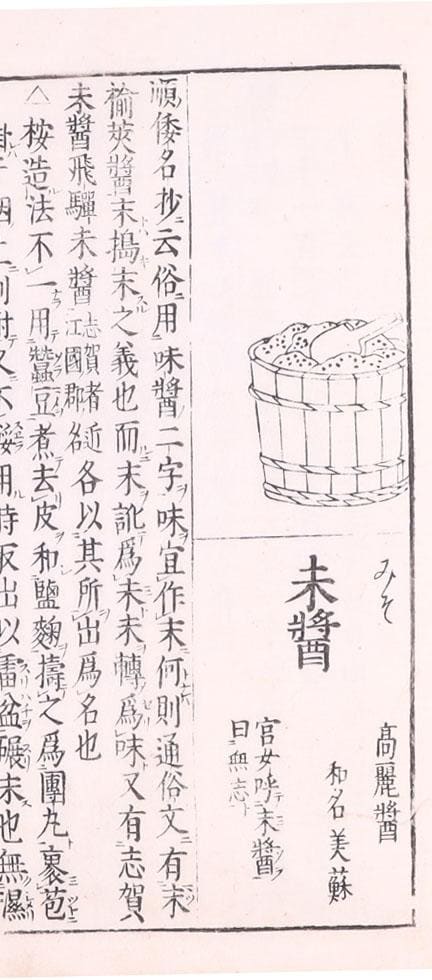 みそ
未醬
高麗醬
和名美蘇
官女呼未醬
曰無志
順倭名抄云俗用味醬二字味宜作末何則通俗文有末
榆莢醬末搗末之義也而末訛爲未未轉爲味又有志賀
未醬飛驒未醬志賀者近江國郡名各以其所出爲名也
△桉造法不一用蠶豆煮去皮和鹽麴擣之爲團丸裹苞
用時取出以雷盆碾末也無濕